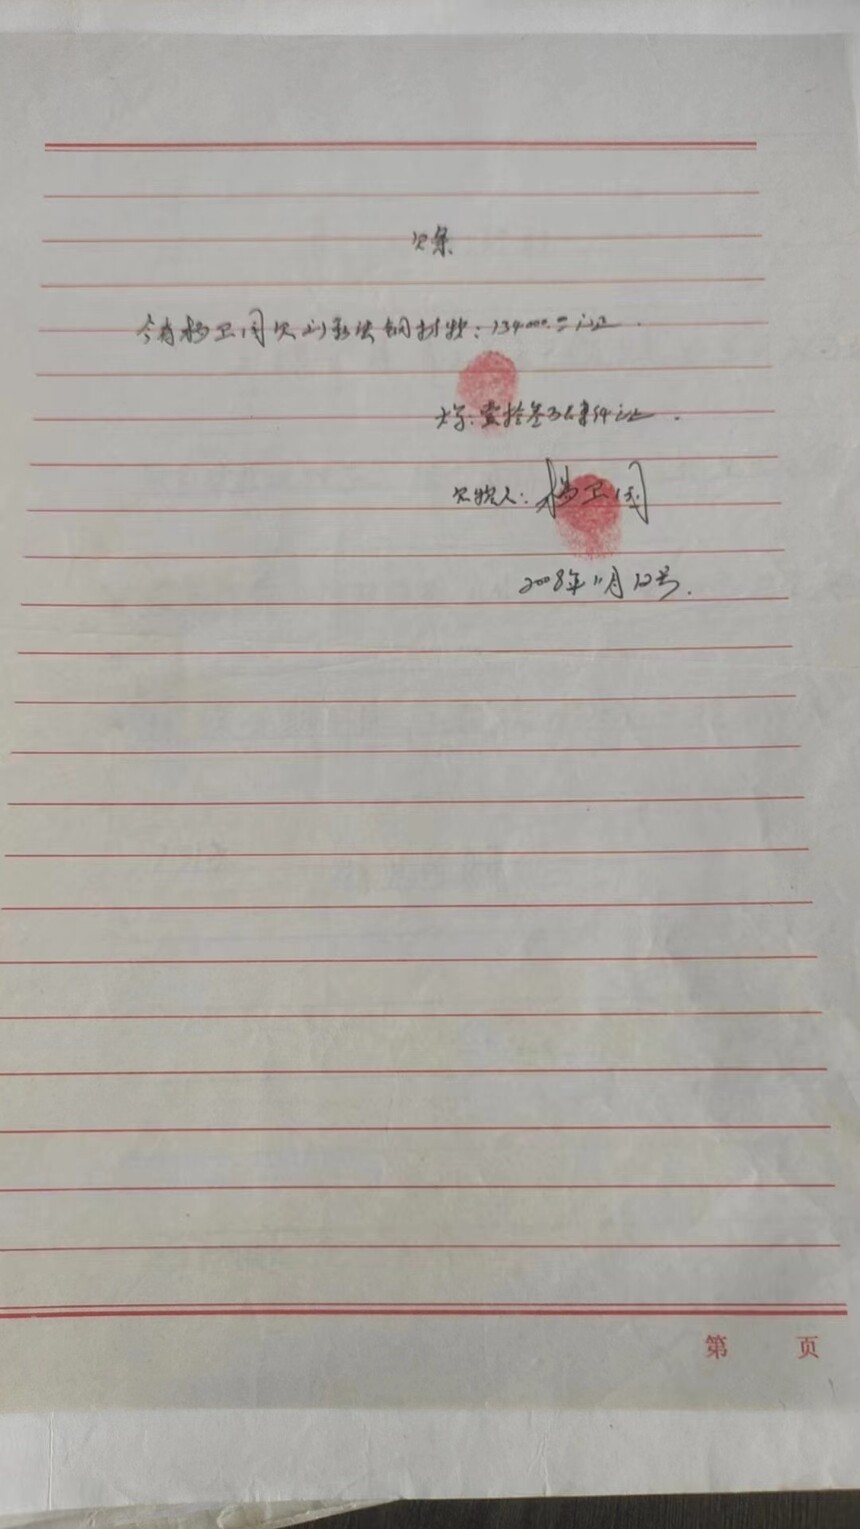 欠条
今有杨卫国欠刘 钢材款:134000.= 元正.
大写:壹拾叁万肆仟元正.
欠款人:杨卫国
2008年11月12号.
第 页